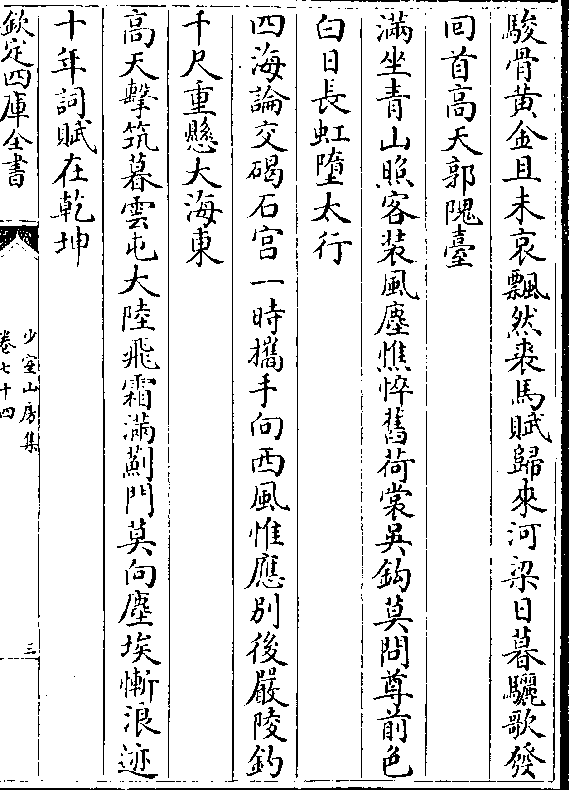 駿骨黄金且未哀飄然裘馬賦歸來河梁日暮驪歌發
回首高天郭隗臺
滿坐青山照客装風塵憔悴舊荷裳吳鈎莫問尊前色
白日長虹墮太行
四海論交碣石宫一時攜手向西風惟應別後嚴陵釣
千尺重懸大海東
高天擊筑暮雲屯大陸飛霜滿薊門莫向塵埃慚浪迹
十年詞賦在乾坤
欽定四庫全書
少室山房集
卷七十四
三